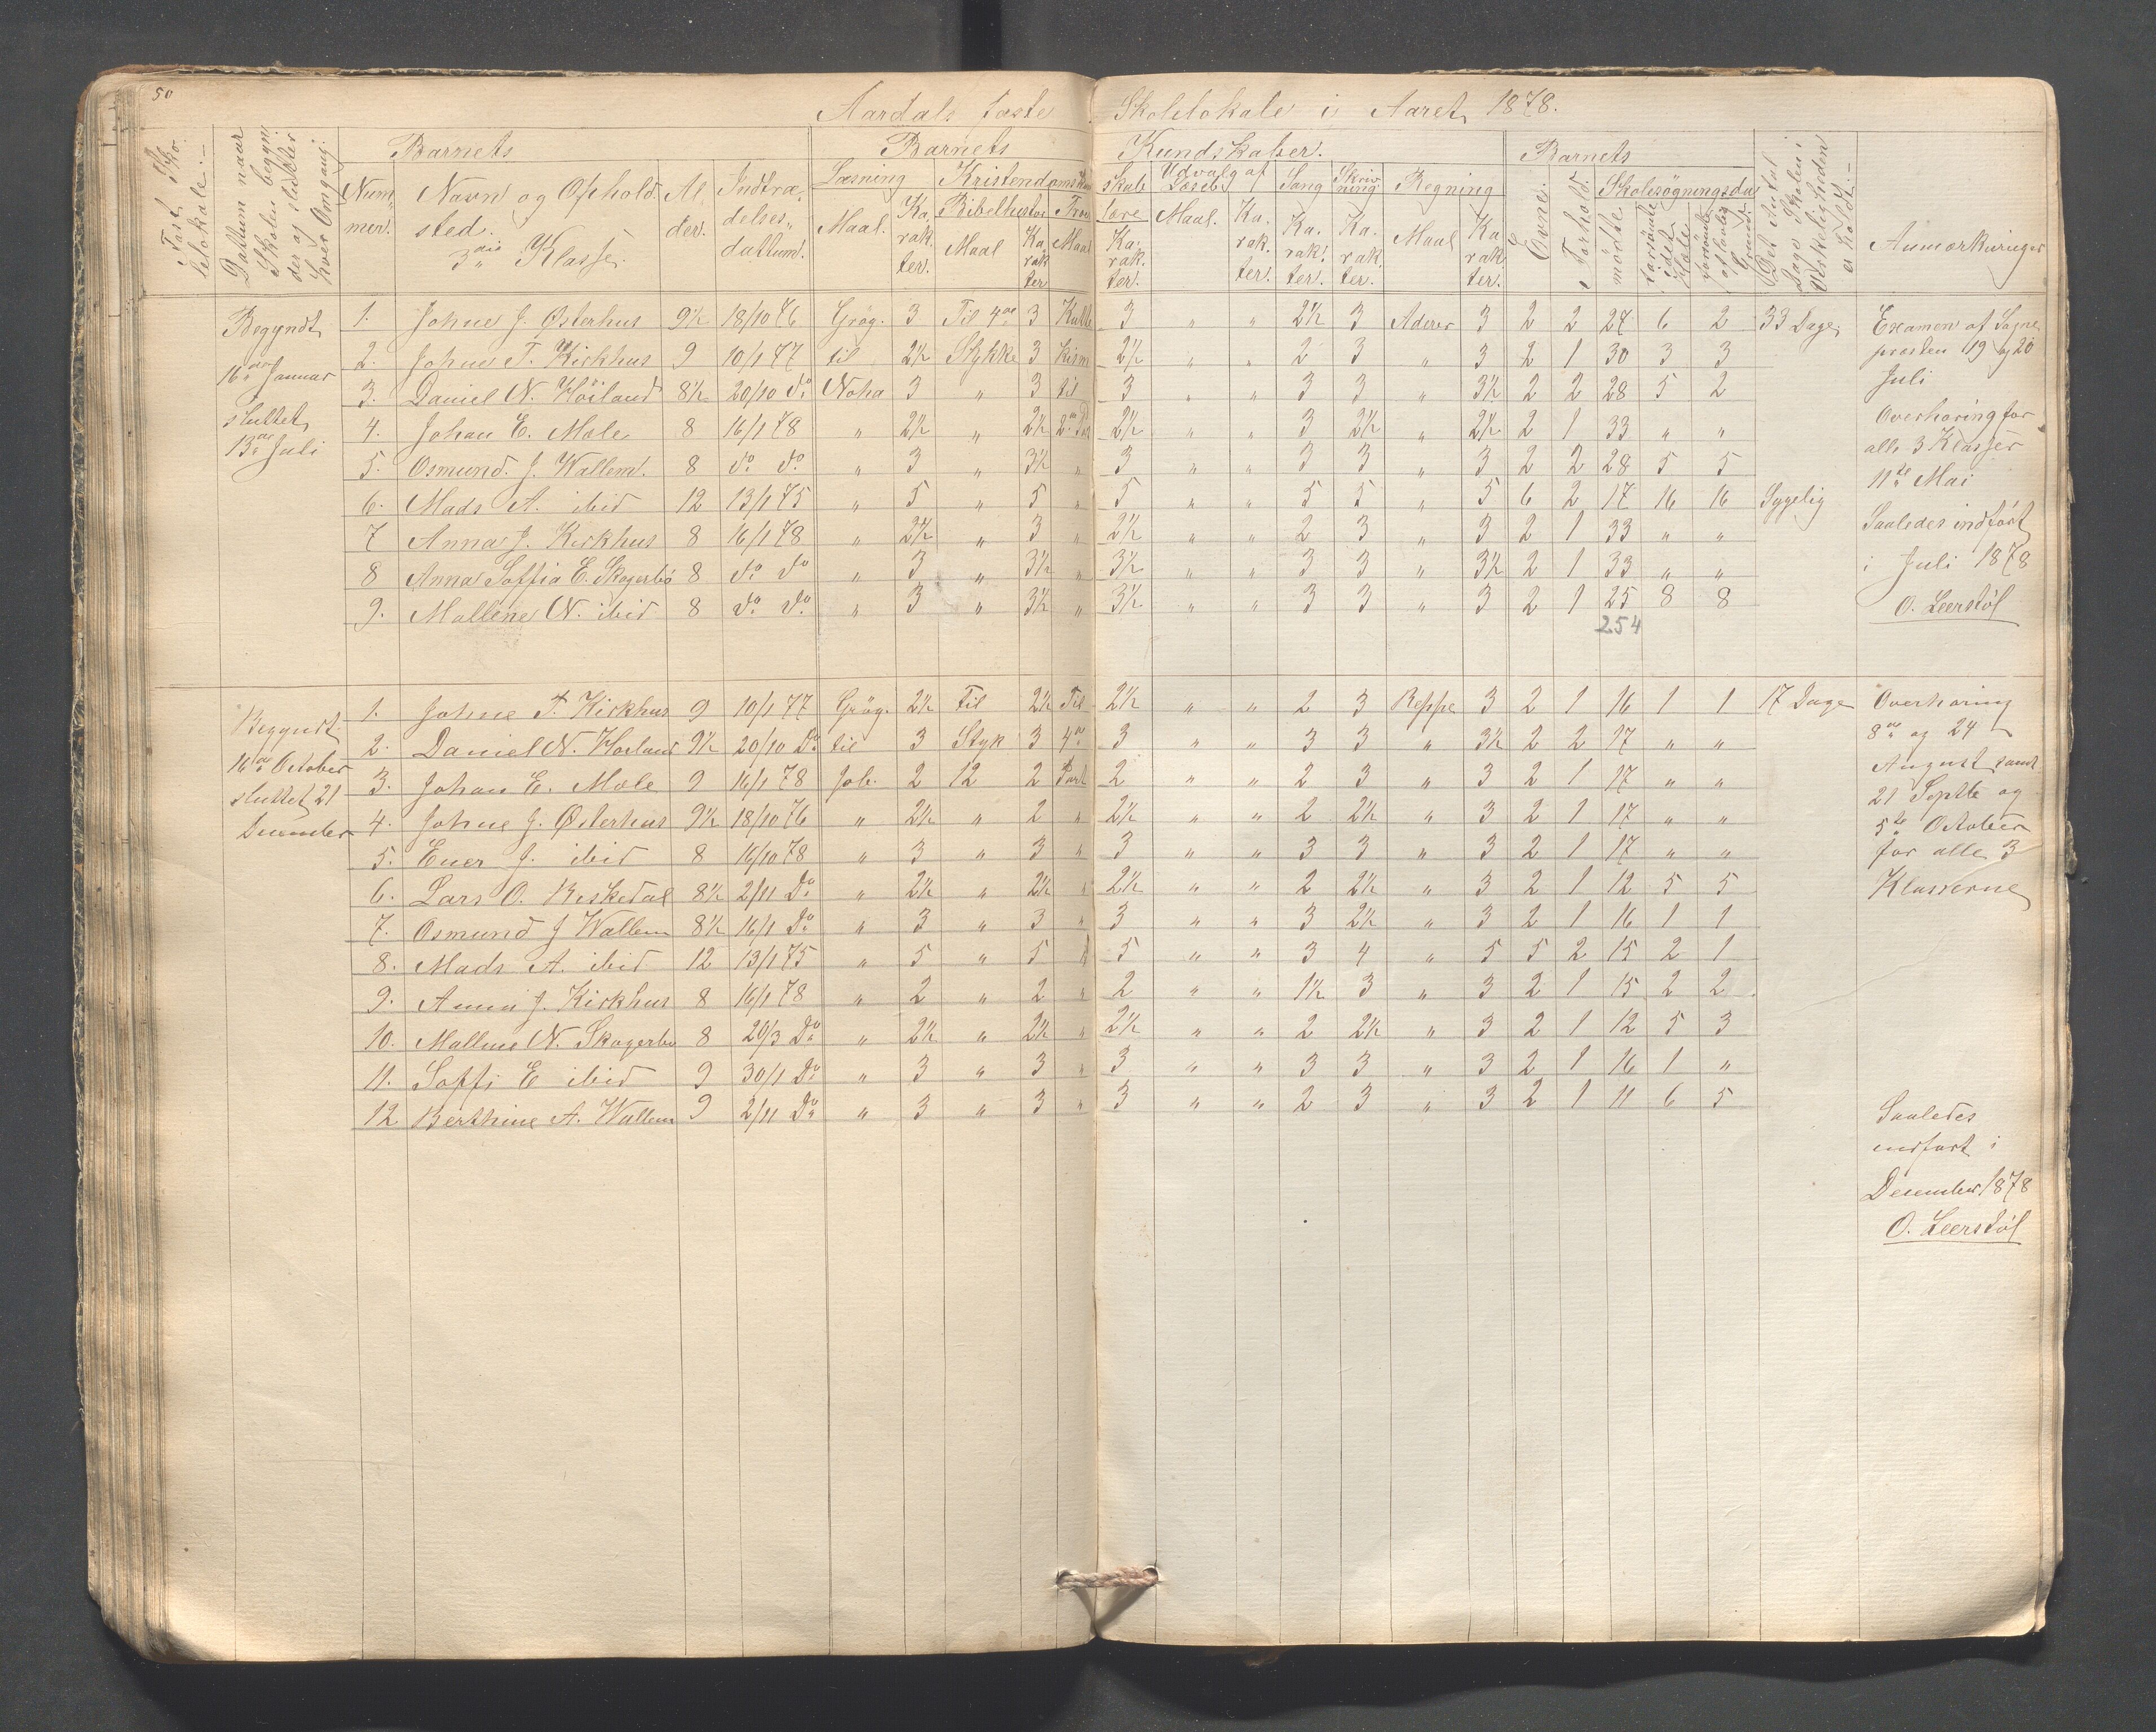 50
Aardals faste Skolelokale i Aaret 1878.
Fast Skolelokale.
Dattum naar Skolen begynder og slutter hver Omgang.
Barnets
Nummer.
Navn og Opholdsted.
3die Klasse.
Alder.
Indtrædelsesdattum.
Barnets Kundskaber.
Læsning
Maal. Karakter.
Kristendomskundskab
Bibelhistorie
Maal Karakter
Troeslære
Maal Karakter.
Udvalg af Læseb.
Maal. Karakter.
Sang
Karakter.
Skrivning
Karakter.
Regning
Maal Karakter.
Barnets
Evner.
Forhold.
Skolesøgningsdage
mødte.
forsømte i det Hele
forsømte af lovlig Grunde
Det Antal Dage Skolen i Virkeligheden er holdt.
Anmærkninger
Begyndt 16de Januar sluttet 13de Juli
1. Johne J. Østerhus 9½ 18/10 76 Grøg. 3 Til 4de 3 3 " " 2½ 3 Aderer 3 2 2 27 6 2 33 Dage
2. Johne T. Kirkhus 9 10/1 77 til 2½ Stykke 3 2½ " " 2 3 " 3 2 1 30 3 3
3. Daniel N. Høiland 8½ 20/10 do Noha 3 " 3 til 3 " " 3 3 " 3½ 2 2 28 5 2
4. Johan E. Mæle 8 16/1 78 " 2½ " 2½ 2½ " " 3 2½ " 2½ 2 1 33 " "
5. Osmund. J. Wallem. 8 do do " 3 " 3½ " 3 " " 3 3 " 3 2 2 28 5 5
6. Mads A. ibid 12 13/1 75 " 5 " 5 " 5 " " 5 5 " 5 6 2 17 16 16 Sygelig
7 Anna J. Kirkhus 8 16/1 78 " 2½ " 3 " 2½ " " 2 3 " 3 2 1 33 " "
8 Anna Soffia E. Skogerbø 8 do do " 3 " 3½ " 3½ " " 3 3 " 3½ 2 1 33 " "
9. Mallene N. ibid 8 do do " 3 " 3½ " 3½ " " 3 3 " 3 2 1 25 8 8
254
Examen af Sogne
præsten 19 og 20
Juli
Overhøring for
alle 3 Klasser
11te Mai
Saaledes indført
i Juli 1878
O. Leerstøl
Begyndt 16de October sluttet 21 December
1. Johne T. Kirkhus 9 10/1 77 Grøg. 2½ Til 2½ Til 2½ " " 2 3 Reppe 3 2 1 16 1 1 17 Dage
2. Daniel N. Høiland 9½ 20/10 Do til 3 Styk 3 4de 3 " " 3 3 " 3½ 2 2 17 " "
3. Johan E. Mæle 9 16/1 78 Job. 2 12 2 Part 2 " " 2 3 " 3 2 1 17 " "
4. Johne J. Østerhus 9½ 18/10 76 " 2½ " 2 " 2½ " " 2 2½ " 3 2 1 17 " "
5. Ener J. ibid 8 16/10 78 " 3 " 3 " 3 " " 3 3 " 3 2 1 17 " "
6. Lars O. Riskedal 8½ 2/11 Do " 2½ " 2½ " 2½ " " 2 2½ " 3 2 1 12 5 5
7. Osmund J Wallem 8½ 16/1 Do " 3 " 3 " 3 " " 3 2½ " 3 2 1 16 1 1
8. Mads A. ibid 12 13/1 75 " 5 " 5 5 " " 3 4 " 5 5 2 15 2 1
9. Anna J. Kirkhus 8 16/1 78 " 2 " 2 " 2 " " 1½ 3 " 3 2 1 15 2 2
10. Mallene N. Skogerbø 8 20/3 Do " 2½ " 2½ " 2½ " " 2 2½ " 3 2 1 12 5 3
11. Soffi E ibid 9 30/1 Do " 3 " 3 " 3 " " 3 3 " 3 2 1 16 1 "
12 Berthine A. Wallem 9 2/11 Do " 3 " 3 " 3 " " 2 3 " 3 2 1 11 6 5
Overhøring
8de og 24
August samt
21 Septbr og
5te October
for alle 3
Klasserne
Saaledes
indført i
December 1878
O. Leerstøl